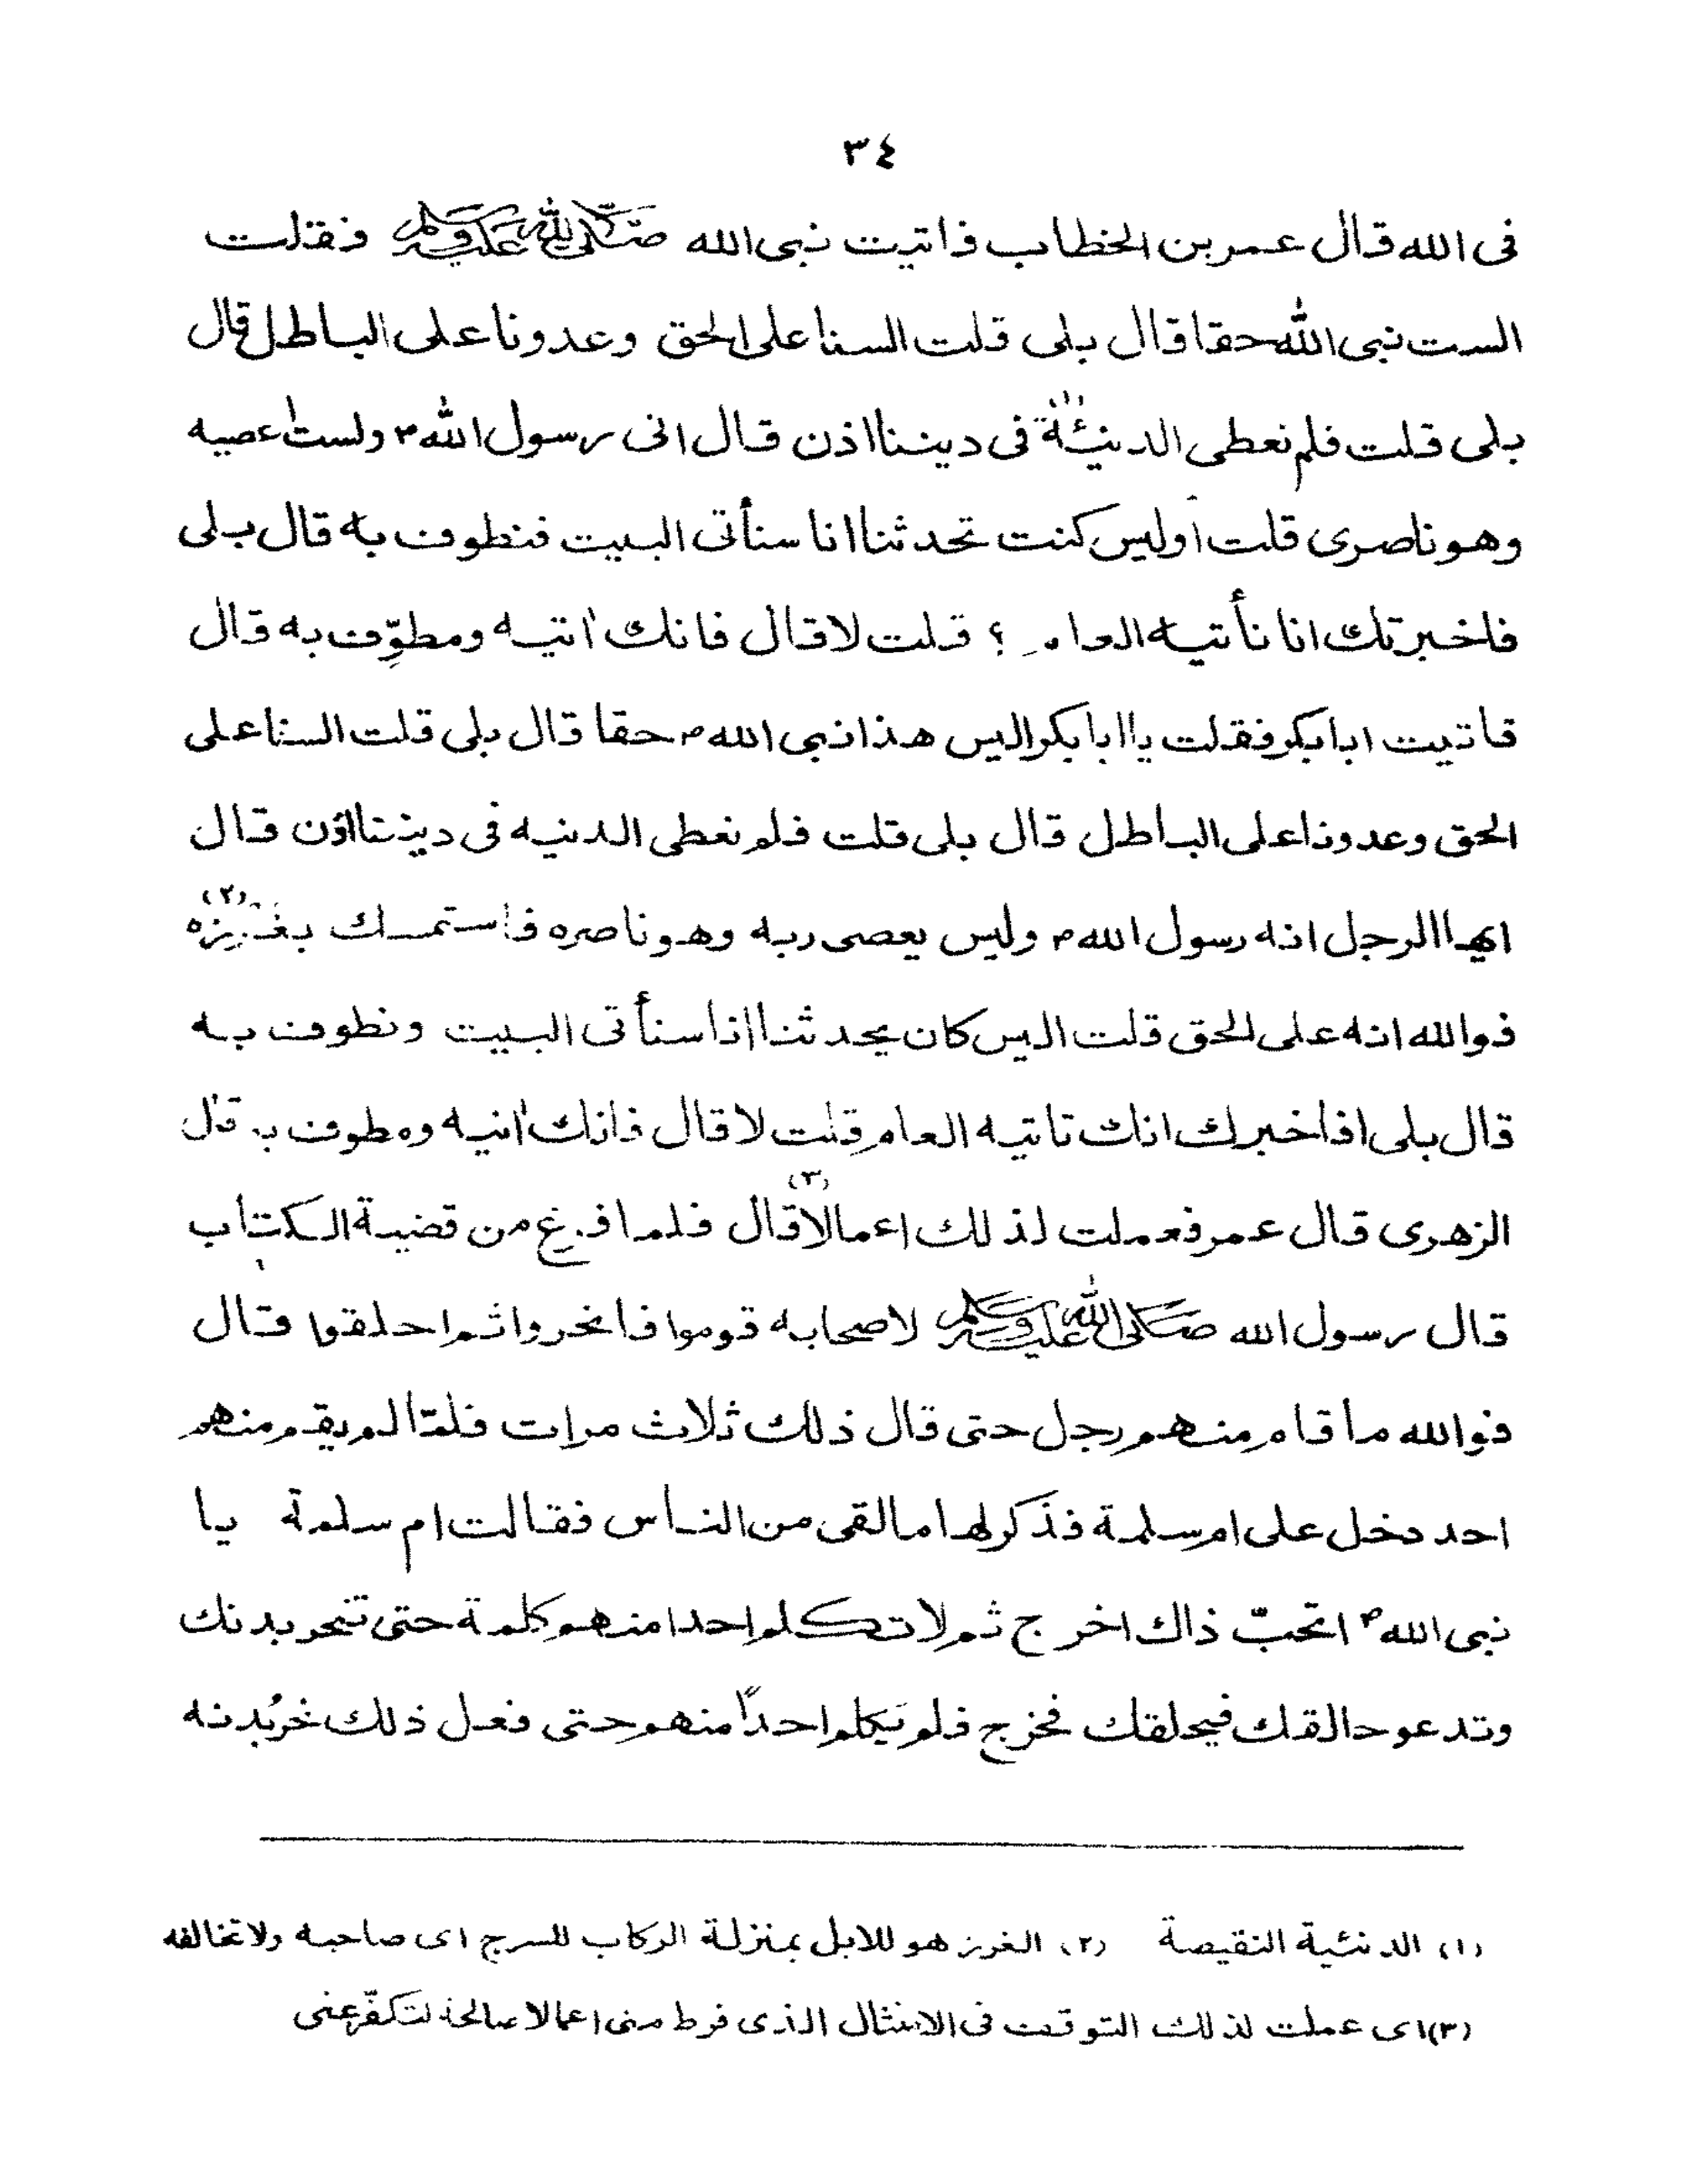 ٣٤
فى الله قال عمر بن الخطاب فاتيت نبى الله صلى الله عليه وسلم فقلت
الست نبى الله حقا قال بلى قلت السنا على الحق وعدونا على الباطل قال
بلى قلت فلم نعطى الدنيئة (١) فى ديننا اذن قال انى رسول الله ص ولست اعصيه
وهو ناصرى قلت أوليس كنت تحدثنا انا سنأتى البيت فنطوف به قال بلى
فاخبرتك انا نأتيه العام ؟ قلت لا قال فانك اتيه ومطوّف به قال
فاتيت ابابكر فقلت يا ابا بكر اليس هذا نبى الله ص حقا قال بلى قلت السنا على
الحق وعدونا على الباطل قال بلى قلت فلم نعطى الدنيه فى ديننا اذن قال
ايها الرجل انه رسول الله ص وليس يعصى ربه وهو ناصره فاستمسك بغرزه (٢)
فوالله انه على الحق قلت اليس كان يحدثنا انا سنأتى البيت ونطوف به
قال بلى افاخبرك انك تاتيه العام قلت لا قال فانك اتيه ومطوف به قال
الزهرى قال عمر فعملت لذلك اعمالا (٣) قال فلما فرغ من قضية الكتاب
قال رسول الله صلى الله عليه وسلم لاصحابه قوموا فانحروا ثم احلقوا قال
فوالله ما قام منهم رجل حتى قال ذلك ثلاث مرات فلمّا لم يقم منهم
احد دخل على ام سلمة فذكر لها ما لقى من الناس فقالت ام سلمة يا
نبى الله ص اتحبّ ذاك اخرج ثم لا تكلم احدا منهم كلمة حتى تنحر بدنك
وتدعو حالقك فيحلقك فخرج فلم يكلم احداً منهم حتى فعل ذلك نحر بُدنه
(١) الدنئية النقيصة (٢) الغرز هو للابل بمنزلة الركاب للسرج اى صاحبه ولا تخالفه
(٣) اى عملت لذلك التوقف فى الامتثال الذى فرط منى اعمالا صالحة لتكفّر عنى